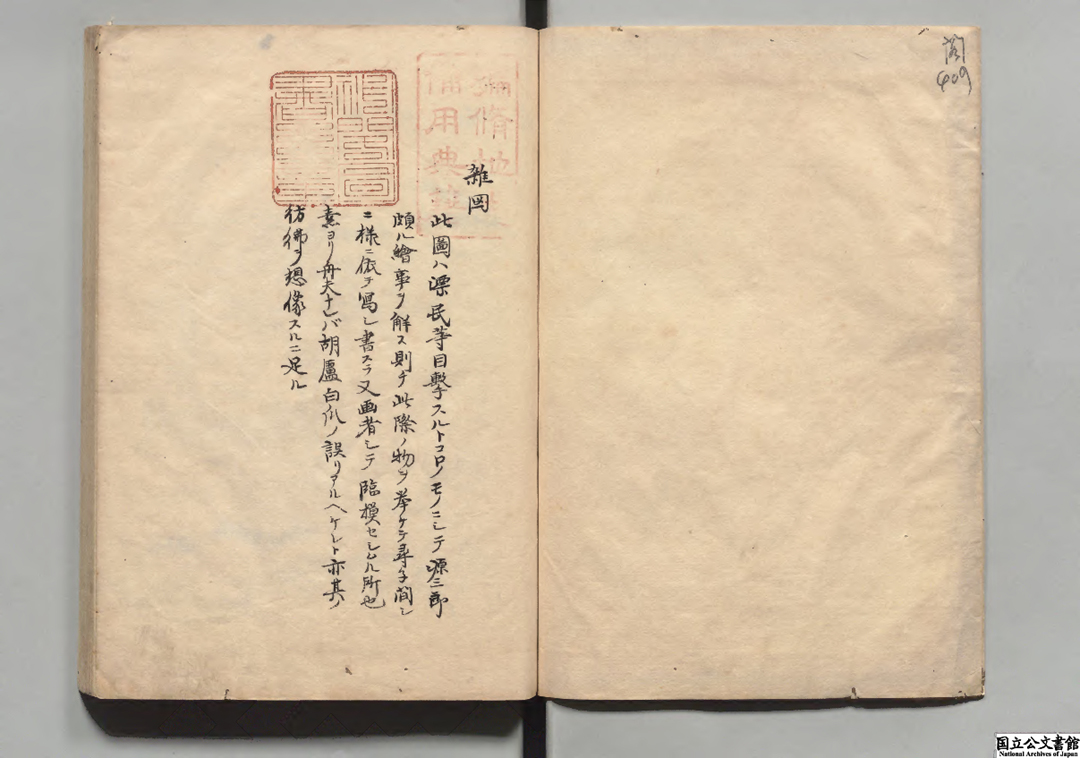 閣
409
雑図
此圖ハ漂民等目撃スルトコロノモノニシテ源三郎
頗ル繪事ヲ解ス則チ此際ノ物ヲ挙ケテ尋子問シ
ニ様ニ依テ寫シ書スヲ又画者シテ臨模セシムル所也
素ヨリ舟夫ナレバ胡盧白瓜ノ誤リアルヘケレト亦其ノ
彷彿ヲ想像スルニ足ル
編脩地
備用典籍
国立公文書館
National Archives of Japan